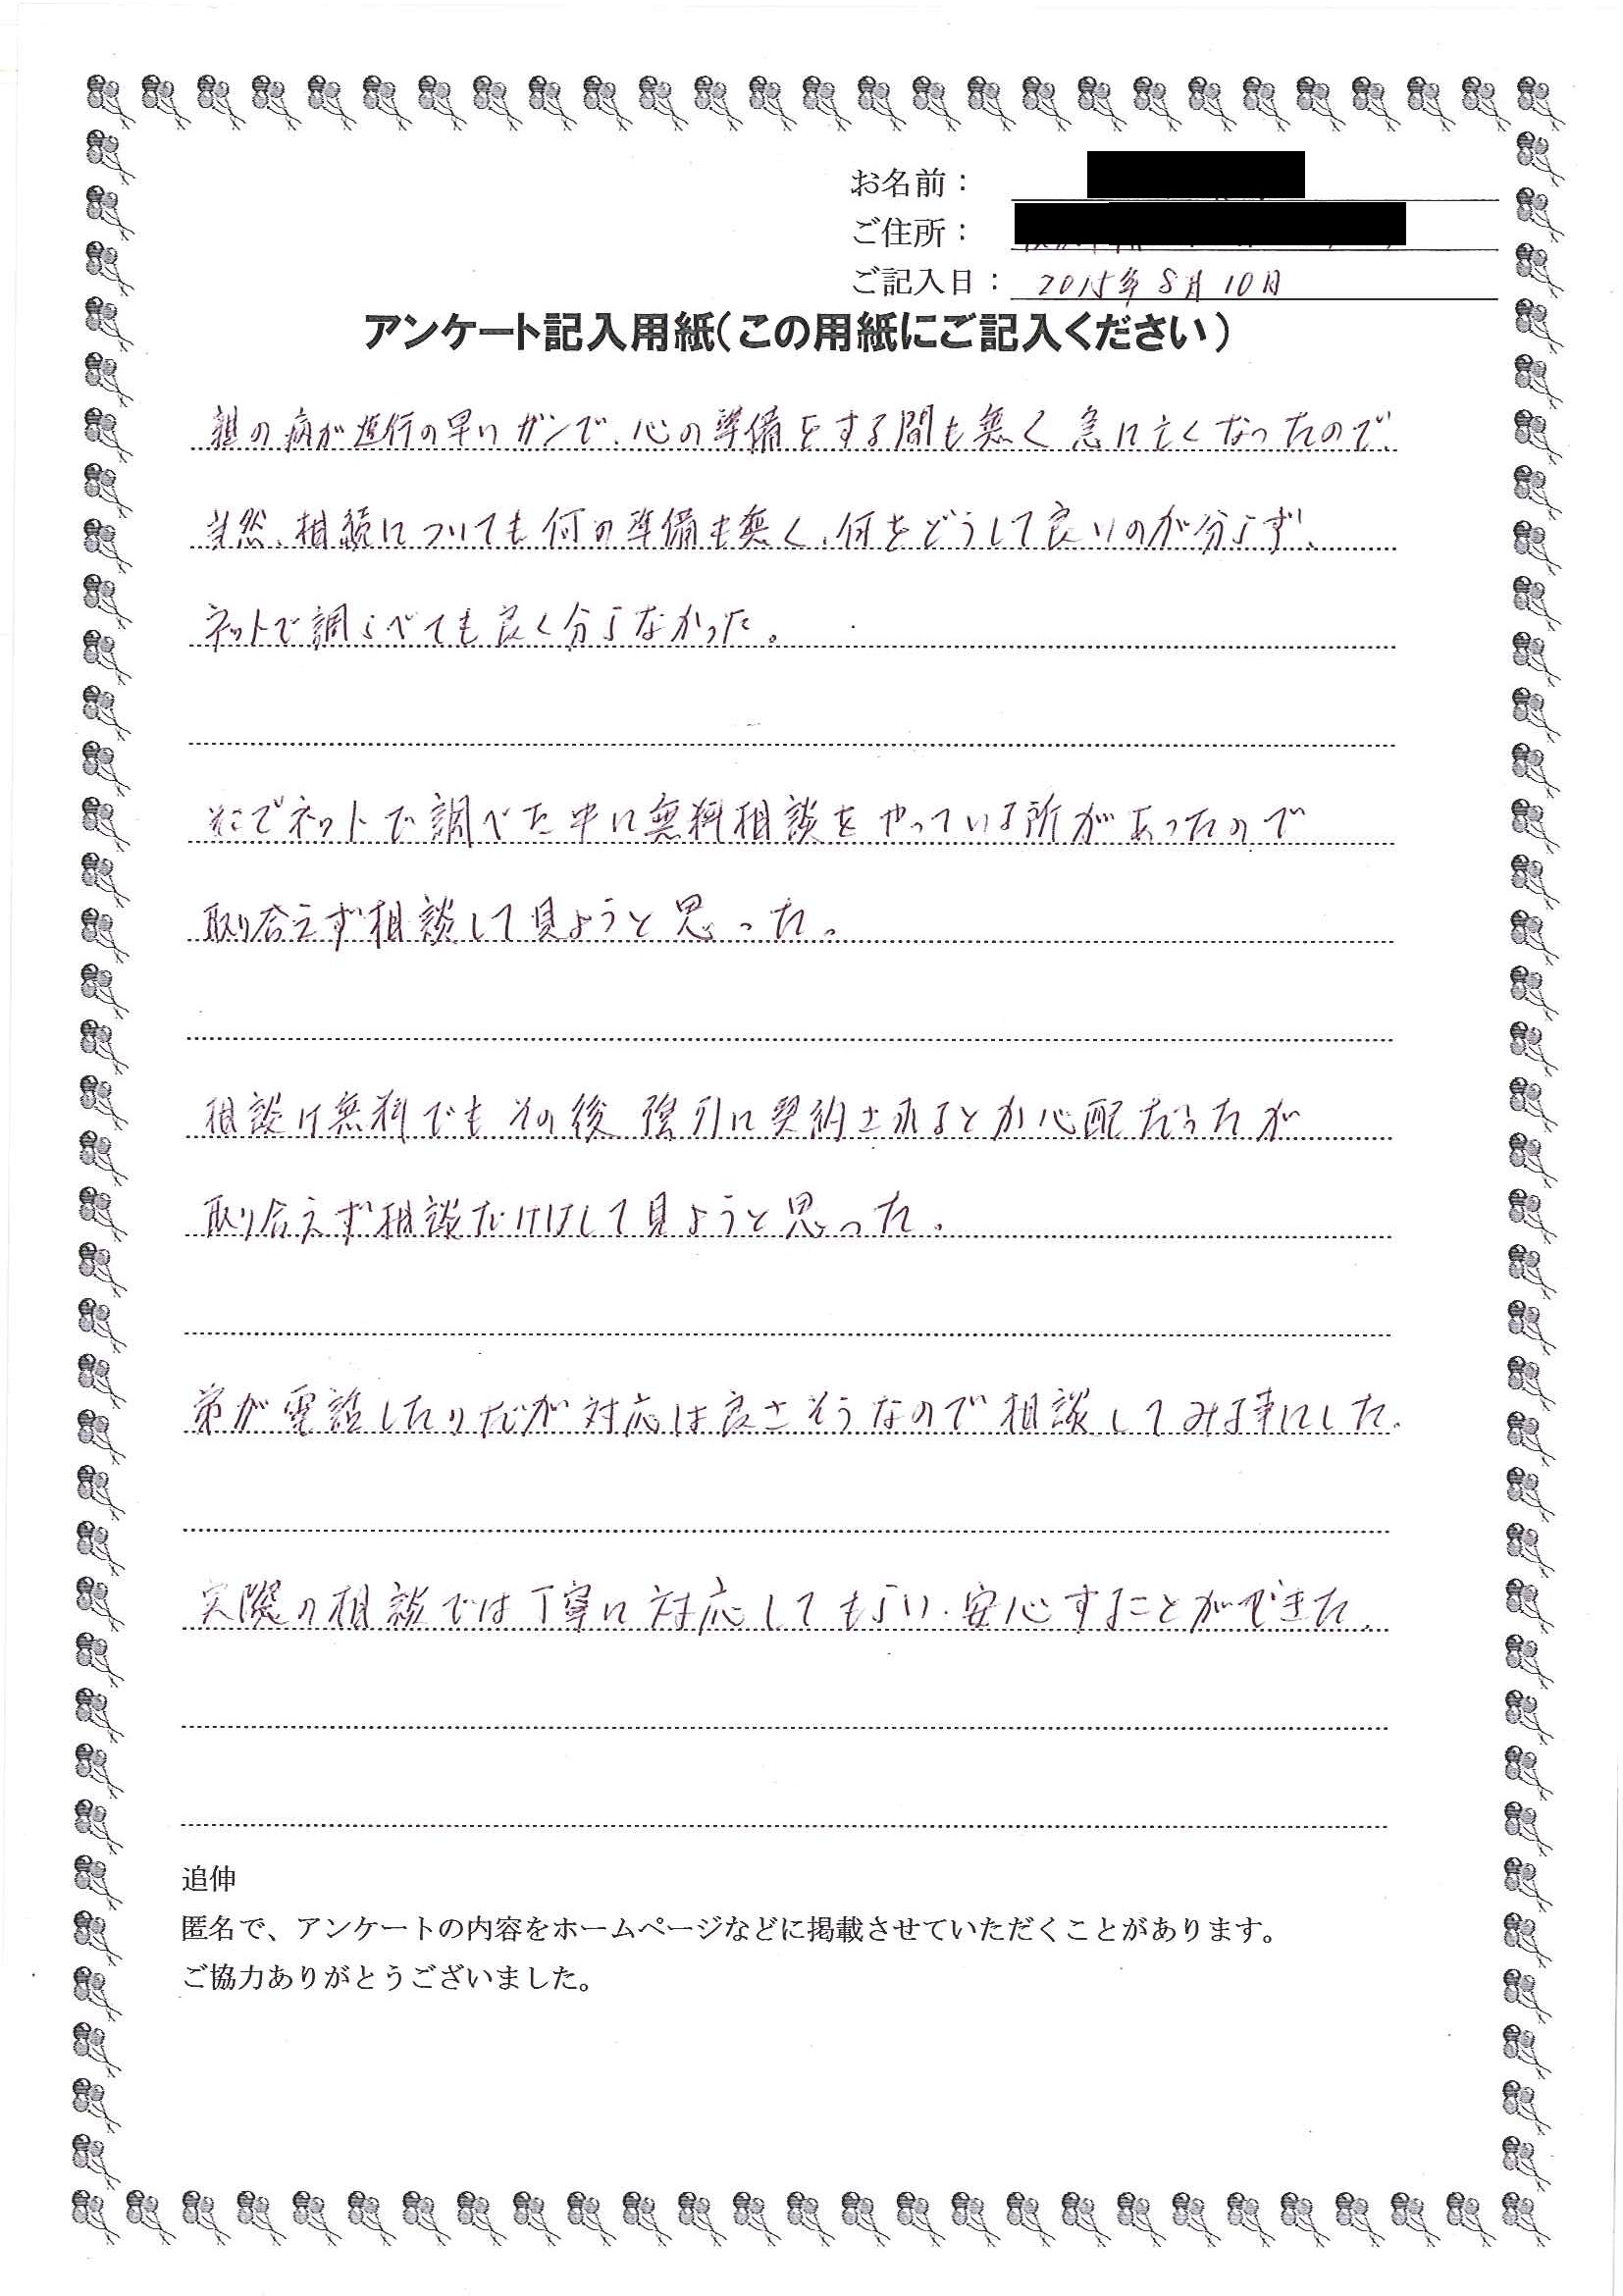 お名前：
ご住所：
ご記入日： 2015年 8月 10日
アンケート記入用紙(この用紙にご記入ください)
親の病が進行の早いガンで、心の準備をする間も無く急に亡くなったので、
当然、相続についても何の準備も無く、何をどうして良いのか分らず、
ネットで調らべても良く分らなかった。
そこでネットで調べた中に無料相談をやっている所があったので
取り合えず相談して見ようと思った。
相談は無料でもその後強引に契約されるとか心配だったが
取り合えず相談だけはして見ようと思った。
弟が電話したのだが対応は良さそうなので相談してみる事にした。
実際の相談では丁寧に対応してもらい、安心することができた。
追伸
匿名で、アンケートの内容をホームページなどに掲載させていただくことがあります。
ご協力ありがとうございました。